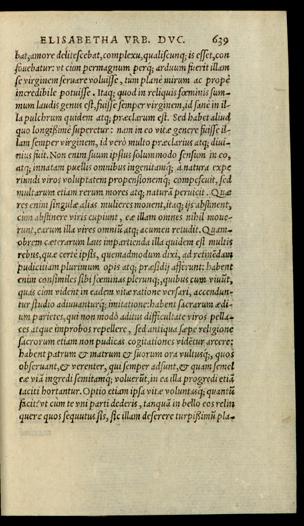 ELISABETHA VRB. DVC. 639
bat, amore delitescebat, complexu, qualiscunq; is esset, con
fouebatur: vt cum permagnum perq; arduum fuerit illam
se virginem seruare voluisse, tum plane mirum ac prope
incredibile potuisse. Itaq; quod in reliquis fœminis sum-
mum laudis genus est, fuisse semper virginem, id sane in il-
la pulchrum quidem atq; præclarum est. Sed habet aliud
quo longissime superetur: nam in eo vitæ genere fuisse il-
lam semper virginem, id vero multo præclarius atq; diui-
nius fuit. Non enim suum ipsius solummodo sensum in eo,
atq; innatam puellis omnibus ingenitamq; a natura expe
riundi viros voluptatem propensionemq; compescuit, sed
multarum etiam rerum mores atq; naturã peruicit. Quæ
res enim singulæ alias mulieres mouent, itaq; ijs abstinent,
cum abstinere viris cupiunt, eæ illam omnes nihil moue-
runt, earum illa vires omniũ atq; acumen retudit. Quam-
obrem cæterarum laus impartienda illa quidem est multis
rebus, quæ certe ipsis, quemadmodum dixi, ad retinẽdam
pudicitiam plurimum opis atq; præsidij afferunt: habent
enim consimiles sibi fœminas plerunq; quibus cum viuũt,
quas cum vident in eadem vitæ ratione versari, accendun-
tur studio adiuuanturq; imitatione: habent sacrarum ædi-
um parietes, qui non modò aditus difficultate viros pella-
ces atque improbos repellere, sed antiqua sæpe religione
sacrorum etiam non pudicas cogitationes vidẽtur arcere:
habent patrum & matrum & suorum ora vultusq; quos
obseruant, & verentur, qui semper adsunt, & quam semel
eæ viã ingredi semitamq; voluerũt, in ea illa progredi etiã
taciti hortantur. Optio etiam ipsa vitæ voluntasq; quantũ
facit? vt cum te vni parti dederis, tanquã in bello eos relin
quere quos sequutus sis, sic illam deserere turpissimũ pla-